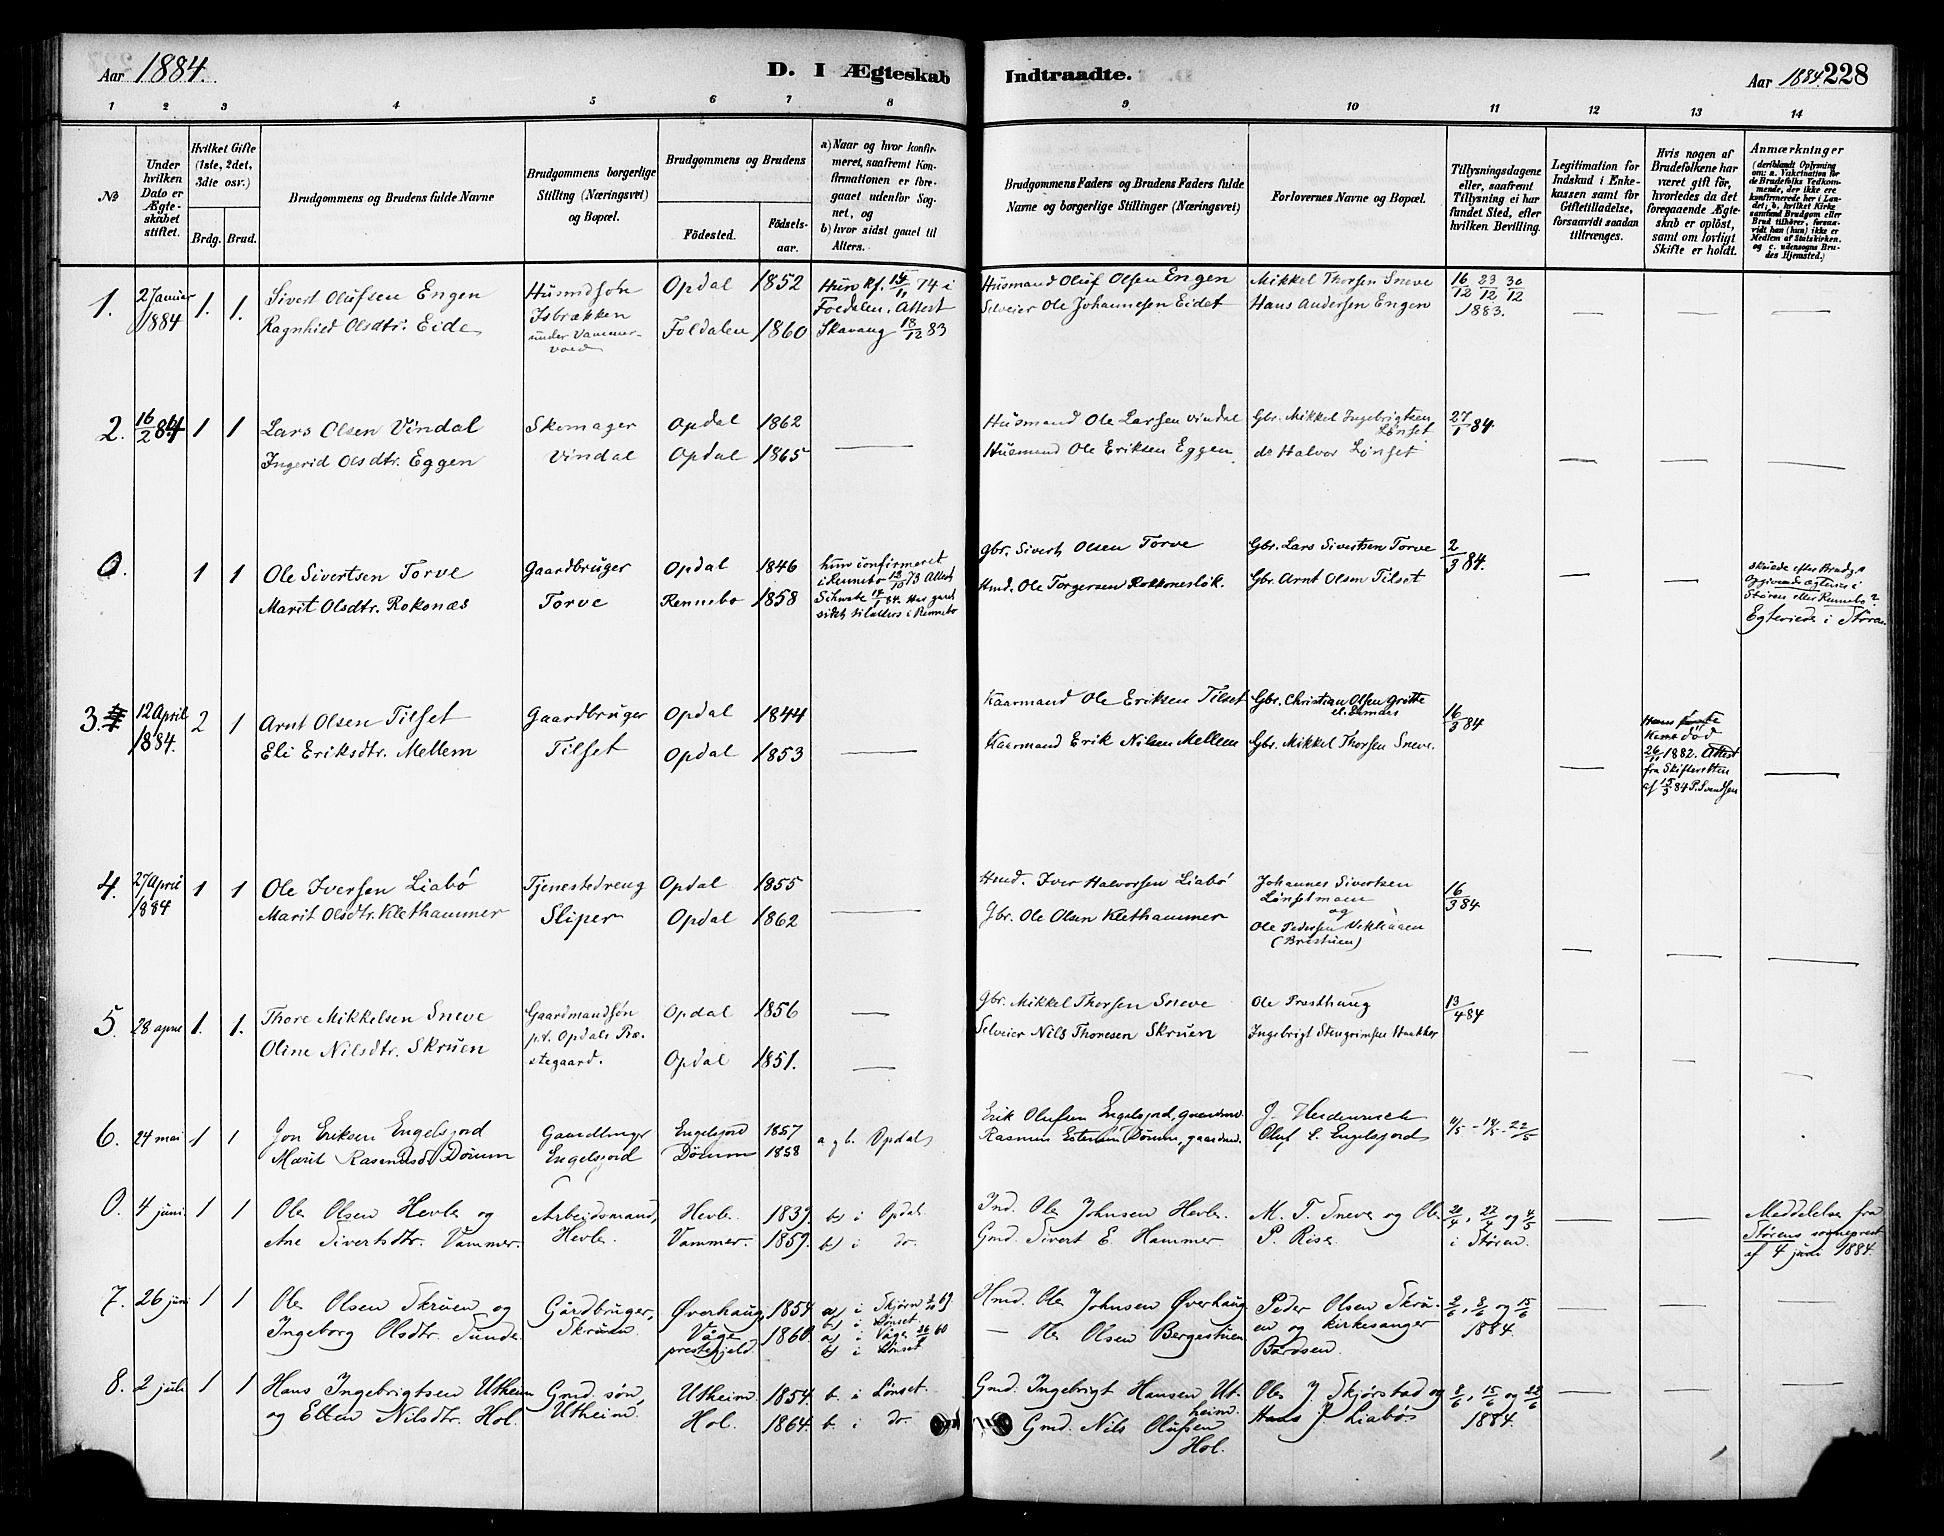 Aar 1884.
D. I Ægteskab
Indtraadte.
Aar 1884. 228
1 2 3 4 5 6 7 8 9 10 11 12 13 14
№
Under hvilken Dato er Ægteskabet stiftet.
Hvilket Gifte (1ste, 2det, 3die osv.)
Brdg. Brud.
Brudgommens og Brudens fulde Navne
Brudgommens borgerlige Stilling (Næringsvei) og Bopæl.
Brudgommens og Brudens
Födested. Födselsaar.
a) Naar og hvor konfirmeret, saafremt Konfirmationen er foregaaet udenfor Sognet, og
b) hvor sidst gaaet til Alters.
Brudgommens Faders og Brudens Faders fulde Navne og borgerlige Stillinger (Næringsvei)
Forlovernes Navne og Bopæl.
Tillysningsdagene eller, saafremt Tillysning ei har fundet Sted, efter hvilken Bevilling.
Legitimation for Indskud i Enkekassen samt for Giftetilladelse, forsaavidt saadan tiltrænges.
Hvis nogen af Brudefolkene har været gift för, hvorledes da det foregaaende Ægteskab er oplöst, samt om lovligt Skifte er holdt.
Anmærkninger
(deriblandt Oplysning om: a. Vakcination för de Brudefolks Vedkommende, der ikke ere konfirmerede her i Landet; b. hvilket Kirkesamfund Brudgom eller Brud tilhörer, forsaavidt han (hun) ikke er Medlem af Statskirken, og c. udensogns Brudes Hjemsted.)
1. 2 Januar 1884 1. 1. Sivert Olufsen Engen Husmdsøn Opdal 1852 Hun kf. 15/11 74 i Husmand Oluf Olsen Engen Mikkel Thorsen Sneve 16/12 23/12 30/12
Ragnhild Olsdtr. Eide Isbrækken under Vammervold Foldalen 1860 Foldalen. Attest Skavang 18/12 83 Selveier Ole Johannesen Eidet Hans Andersen Engen 1883. — — —
2. 16/2 84 1 1 Lars Olsen Vindal Skomager Opdal 1862 Husmand Ole Larsen Vindal Gbr. Mikkel Ingebrigtsen Lønset 27/1 84.
Ingerid Olsdtr. Eggen Vindal Opdal 1865 — Husmand Ole Eriksen Eggen. do Halvor Lønset — — —
0. 1 1 Ole Sivertsen Torve Gaardbruger Opdal 1846 hun confirmeret i Rennebo 12/10 73 Attest Gbr. Sivert Olsen Torve Gbr. Lars Sivertsen Torve 2/3 84. — —
Marit Olsdtr. Rokonæs Torve Rennebo 1858 14/1 84. Har gaaet sidst til alters i Rennebo Hmd. Ole Torgersen Gbr. Arnt Olsen Tilset
skede efter Brudgs Opgivende ægtevies i Støren eller Rennebo?
Egteviede i Støren
3. 12 April 1884. 2 1 Arnt Olsen Tilset Gaardbruger Opdal 1844 Kaarmand Ole Eriksen Tilset Gbr. Christian Olsen Gritte 16/3 84
Eli Eriksdtr. Mellem Tilset Opdal 1853 — Kaarmand Erik Nilsen Mellem Gbr. Mikkel Thorsen Sneve. —
død 26/11 1882. Attest fra Skifteretten af 15/3 84 P. Svendsen —
4. 27 April 1884 1 1 Ole Iversen Liabø Tjenestedreng Opdal 1855 Hmd. Iver Halvorsen Liabø Johannes Sivertsen Lønsetmoen 16/3 84
Marit Olsdtr. Klethammer Sliper Opdal 1862 — Gbr. Ole Olsen Klethammer og Ole Pedersen Vekhaaen — — —
5. 28 april 1. 1. Thore Mikkelsen Sneve Gaardmandsøn Opdal 1856 — Gbr. Mikkel Thorsen Sneve Ole Presthaug 13/4 84
Oline Nilsdtr. Skruen p.t. Opdals Præstegaard. Opdal 1851. — Selveier Nils Thoresen Skruen Ingebrigt Stengrimsen Haakker — — —
6. 24 mai 1 1 Jon Eriksen Engelsjord Gaardbruger Engelsjord 1857 a og b. Opdal Erik Olufsen Engelsjord, gaardmd. J. Heidenreich 11/5 - 18/5 - 22/5
Marit Rasmusdt. Dørum Engelsjord Dørum 1858 Rasmus Estensen Dørum, gaardmd. Oluf E. Engelsjord
0. 4 juni. 1 1 Ole Olsen Hevle og Arbeidsmand, Hevle. 1839. b) i Opdal. Ind. Ole Johnsen Hevle. M. T. Sneve og Ole 20/4, 27/4 og 4/5 — — Meddelelse fra
Ane Sivertsdtr. Vammer. Hevle. Vammer. 1859. b) i do. Gmd. Sivert E. Hammer P. Rise i Støren. Størens sogneprest af 4 juni 1884.
7. 26 juni 1 1 Ole Olsen Skruen og Gårdbruger, Øverhaug, 1854. a) i Skjørn 3/10 69. b) i Lønset. Hmd. Ole Johnsen Øverhaug Peder Olsen Skruen og kirkesanger Bårdsen. 2/6, 8/6 og 15/6 1884.
Ingeborg Olsdtr. Sunde. Skruen. Våge prestegjeld. 1860. a) i Våge b) i Lønset — Ole Olsen Bergestuen
8. 2 juli 1 1 Hans Ingebrigtsen Utheim Gmd. søn, Utheim. 1854. b. i Lønset. Gmd. Ingebrigt Hansen Utheim. Ole J. Skjørstad og 8/6, 15/6 og 22/6 — — —
og Ellen Nilsdtr. Hol. Utheim. Hol. 1864. b. i do. Gmd. Nils Olufsen Hol. Hans J. Liabø 1884.